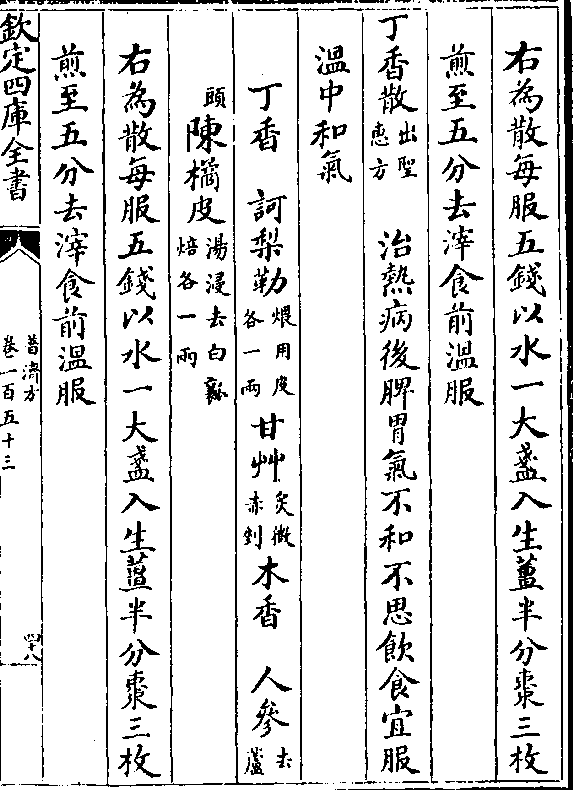 右為散每服五錢以水一大盞入生薑半分棗三枚
煎至五分去滓食前溫服
丁香散出聖惠方 治熱病後脾胃氣不和不思飲食宜服
溫中和氣
丁香 訶梨勒煨用皮各一兩 甘艸炙微赤剉 木香 人參去蘆
頭 陳橘皮湯浸去白瓤焙各一兩
右為散每服五錢以水一大盞入生薑半分棗三枚
煎至五分去滓食前溫服
欽定四庫全書
普濟方
卷一百五十三
四十八